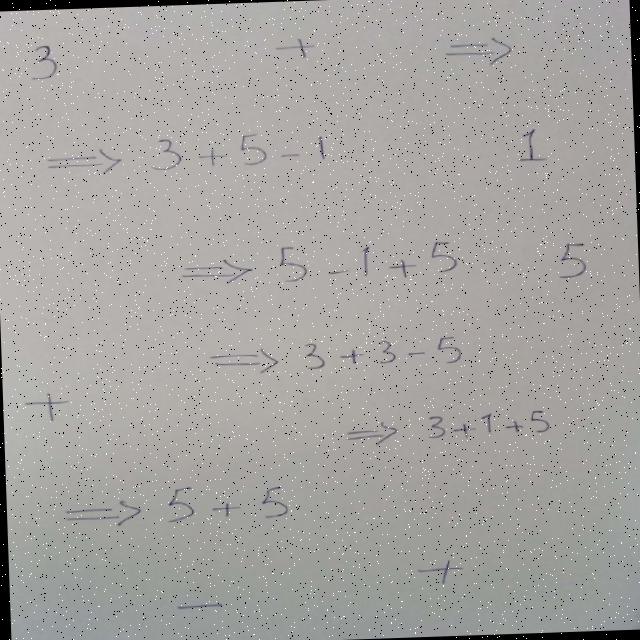 3 + ⇒
⇒ 3 + 5 - 1 1
⇒ 5 - 1 + 5 5
⇒ 3 + 3 - 5
+
⇒ 3 + 1 + 5
⇒ 5 + 5
+
-